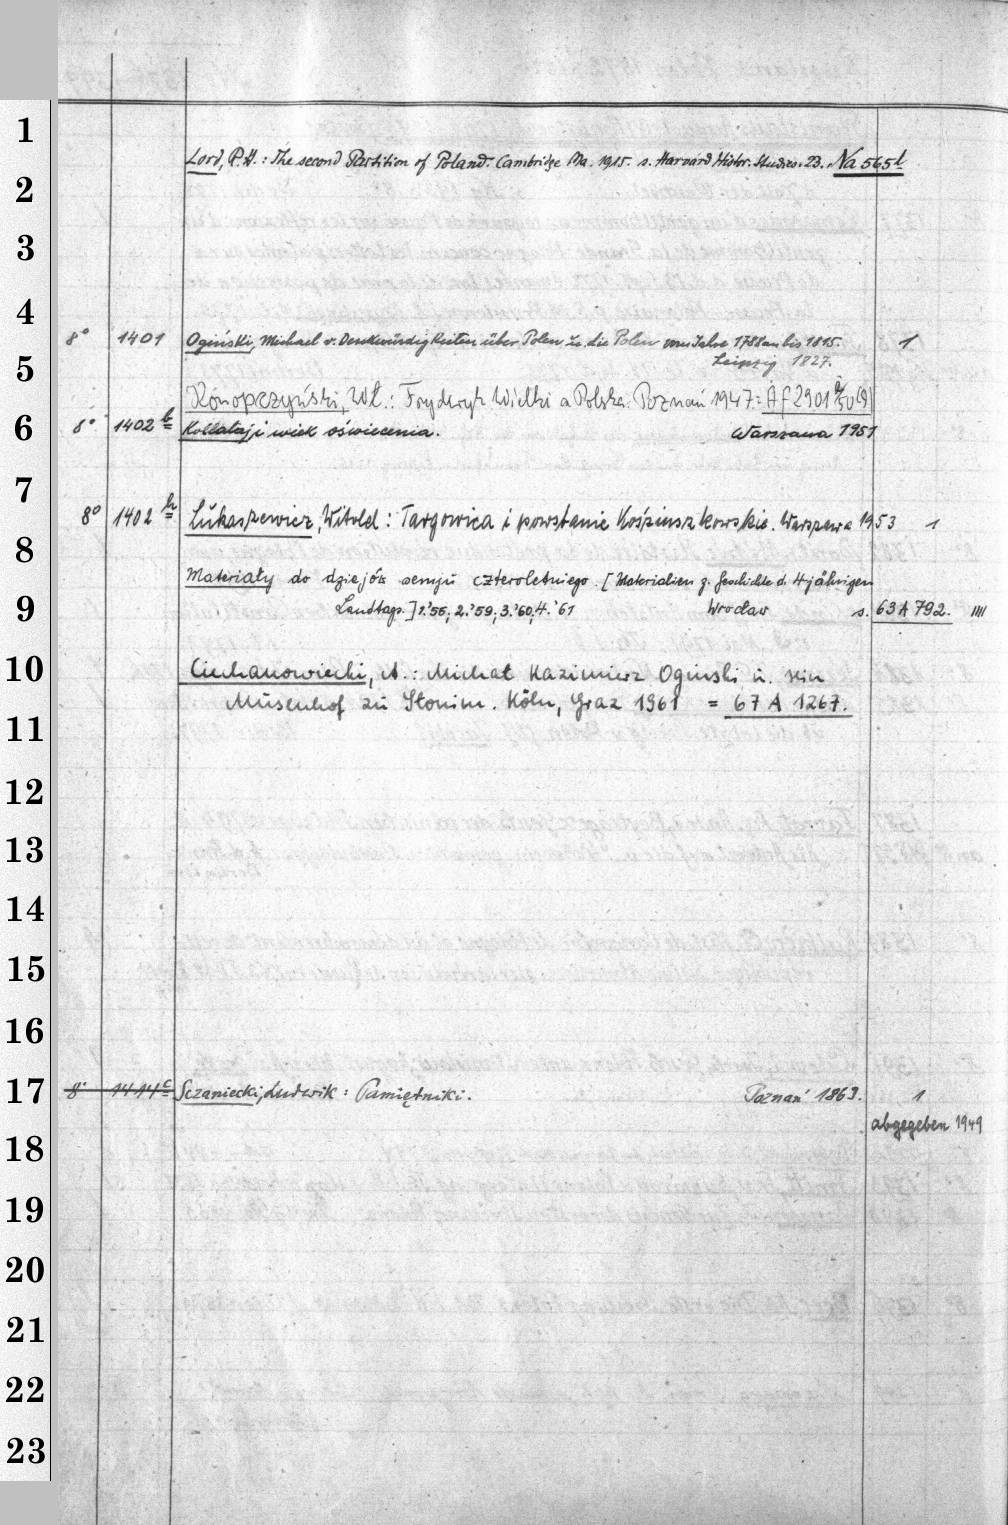 1
Lord, R. H.: The second Partition of Poland. Cambridge Ma. 1915. s. Harvard Histor. Studies. 23. Na 565t
2
3
4
8° 1401 Ogiński, Michael v. Denkwürdigkeiten über Polen u. die Polen vom Jahre 1788 an bis 1815. 1
Leipzig 1827.
5
Konopczyński, Wł.: Fryderyk Wielki a Polska. Poznań 1947. = Af 2901
6
8° 1402 Kołłątaj i wiek oświecenia. Warszawa 1951
7
8° 1402 Łukaszewicz, Witold: Targowica i powstanie Kościuszkowskie. Warszawa 1953 1
8
Materiały do dziejów sejmu czteroletniego. [Materialien z. Geschichte d. 4jährigen
9
Landtags.] 1.'55, 2.'59, 3.'60, 4.'61 Wrocław s. 63 A 792. IIII
10
Ciechanowiecki, A.: Michał Kazimierz Ogiński u. sein
Musenhof zu Słonim. Köln, Graz 1961 = 67 A 1267.
11
12
13
14
15
16
17
8° 1414c Sczaniecki, Ludwik: Pamiętniki. Poznań 1863. 1
abgegeben 1949
18
19
20
21
22
23